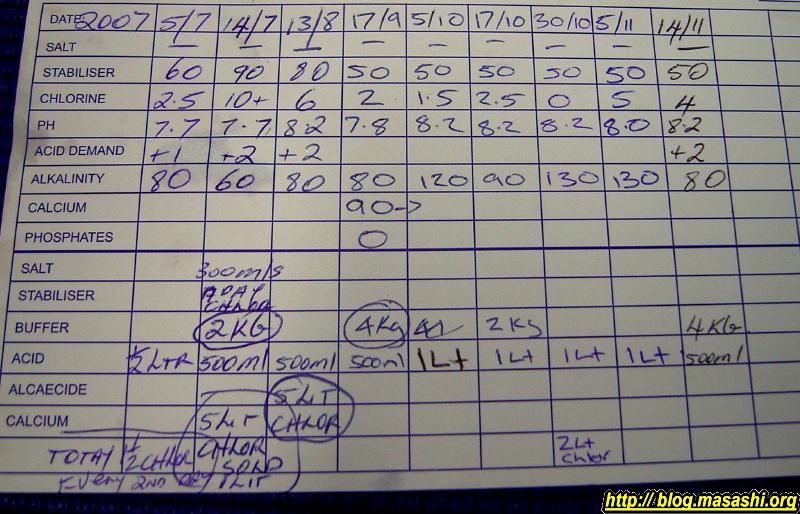 DATE 2007 5/7 14/7 13/8 17/9 5/10 17/10 30/10 5/11 14/11
SALT — — — — — — — — —
STABILISER 60 90 80 50 50 50 50 50 50
CHLORINE 2.5 10+ 6 2 1.5 2.5 0 5 4
PH 7.7 7.7 8.2 7.8 8.2 8.2 8.2 8.0 8.2
ACID DEMAND +1 +2 +2 +2
ALKALINITY 80 60 80 80 120 90 130 130 80
CALCIUM 90->
PHOSPHATES 0
SALT 300m/s
STABILISER A DAY
CHLOR
BUFFER 2KG 4Kg 2Kg 4KG
ACID 1/2 LTR 500ml 500ml 500ml 1Lt 1Lt 1Lt 1Lt 500ml
ALCAECIDE 5 LIT
CALCIUM 5 LIT CHLOR
TOTAY 1/2 CHLOR CHLOR 2Lt
SOLD chlor
Every 2nd DAY LIT
http://blog.masashi.org